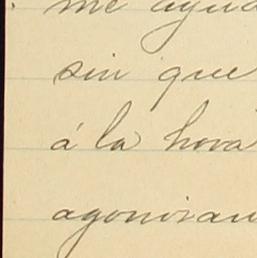 me ayud
sin que
á la hora
agonizan